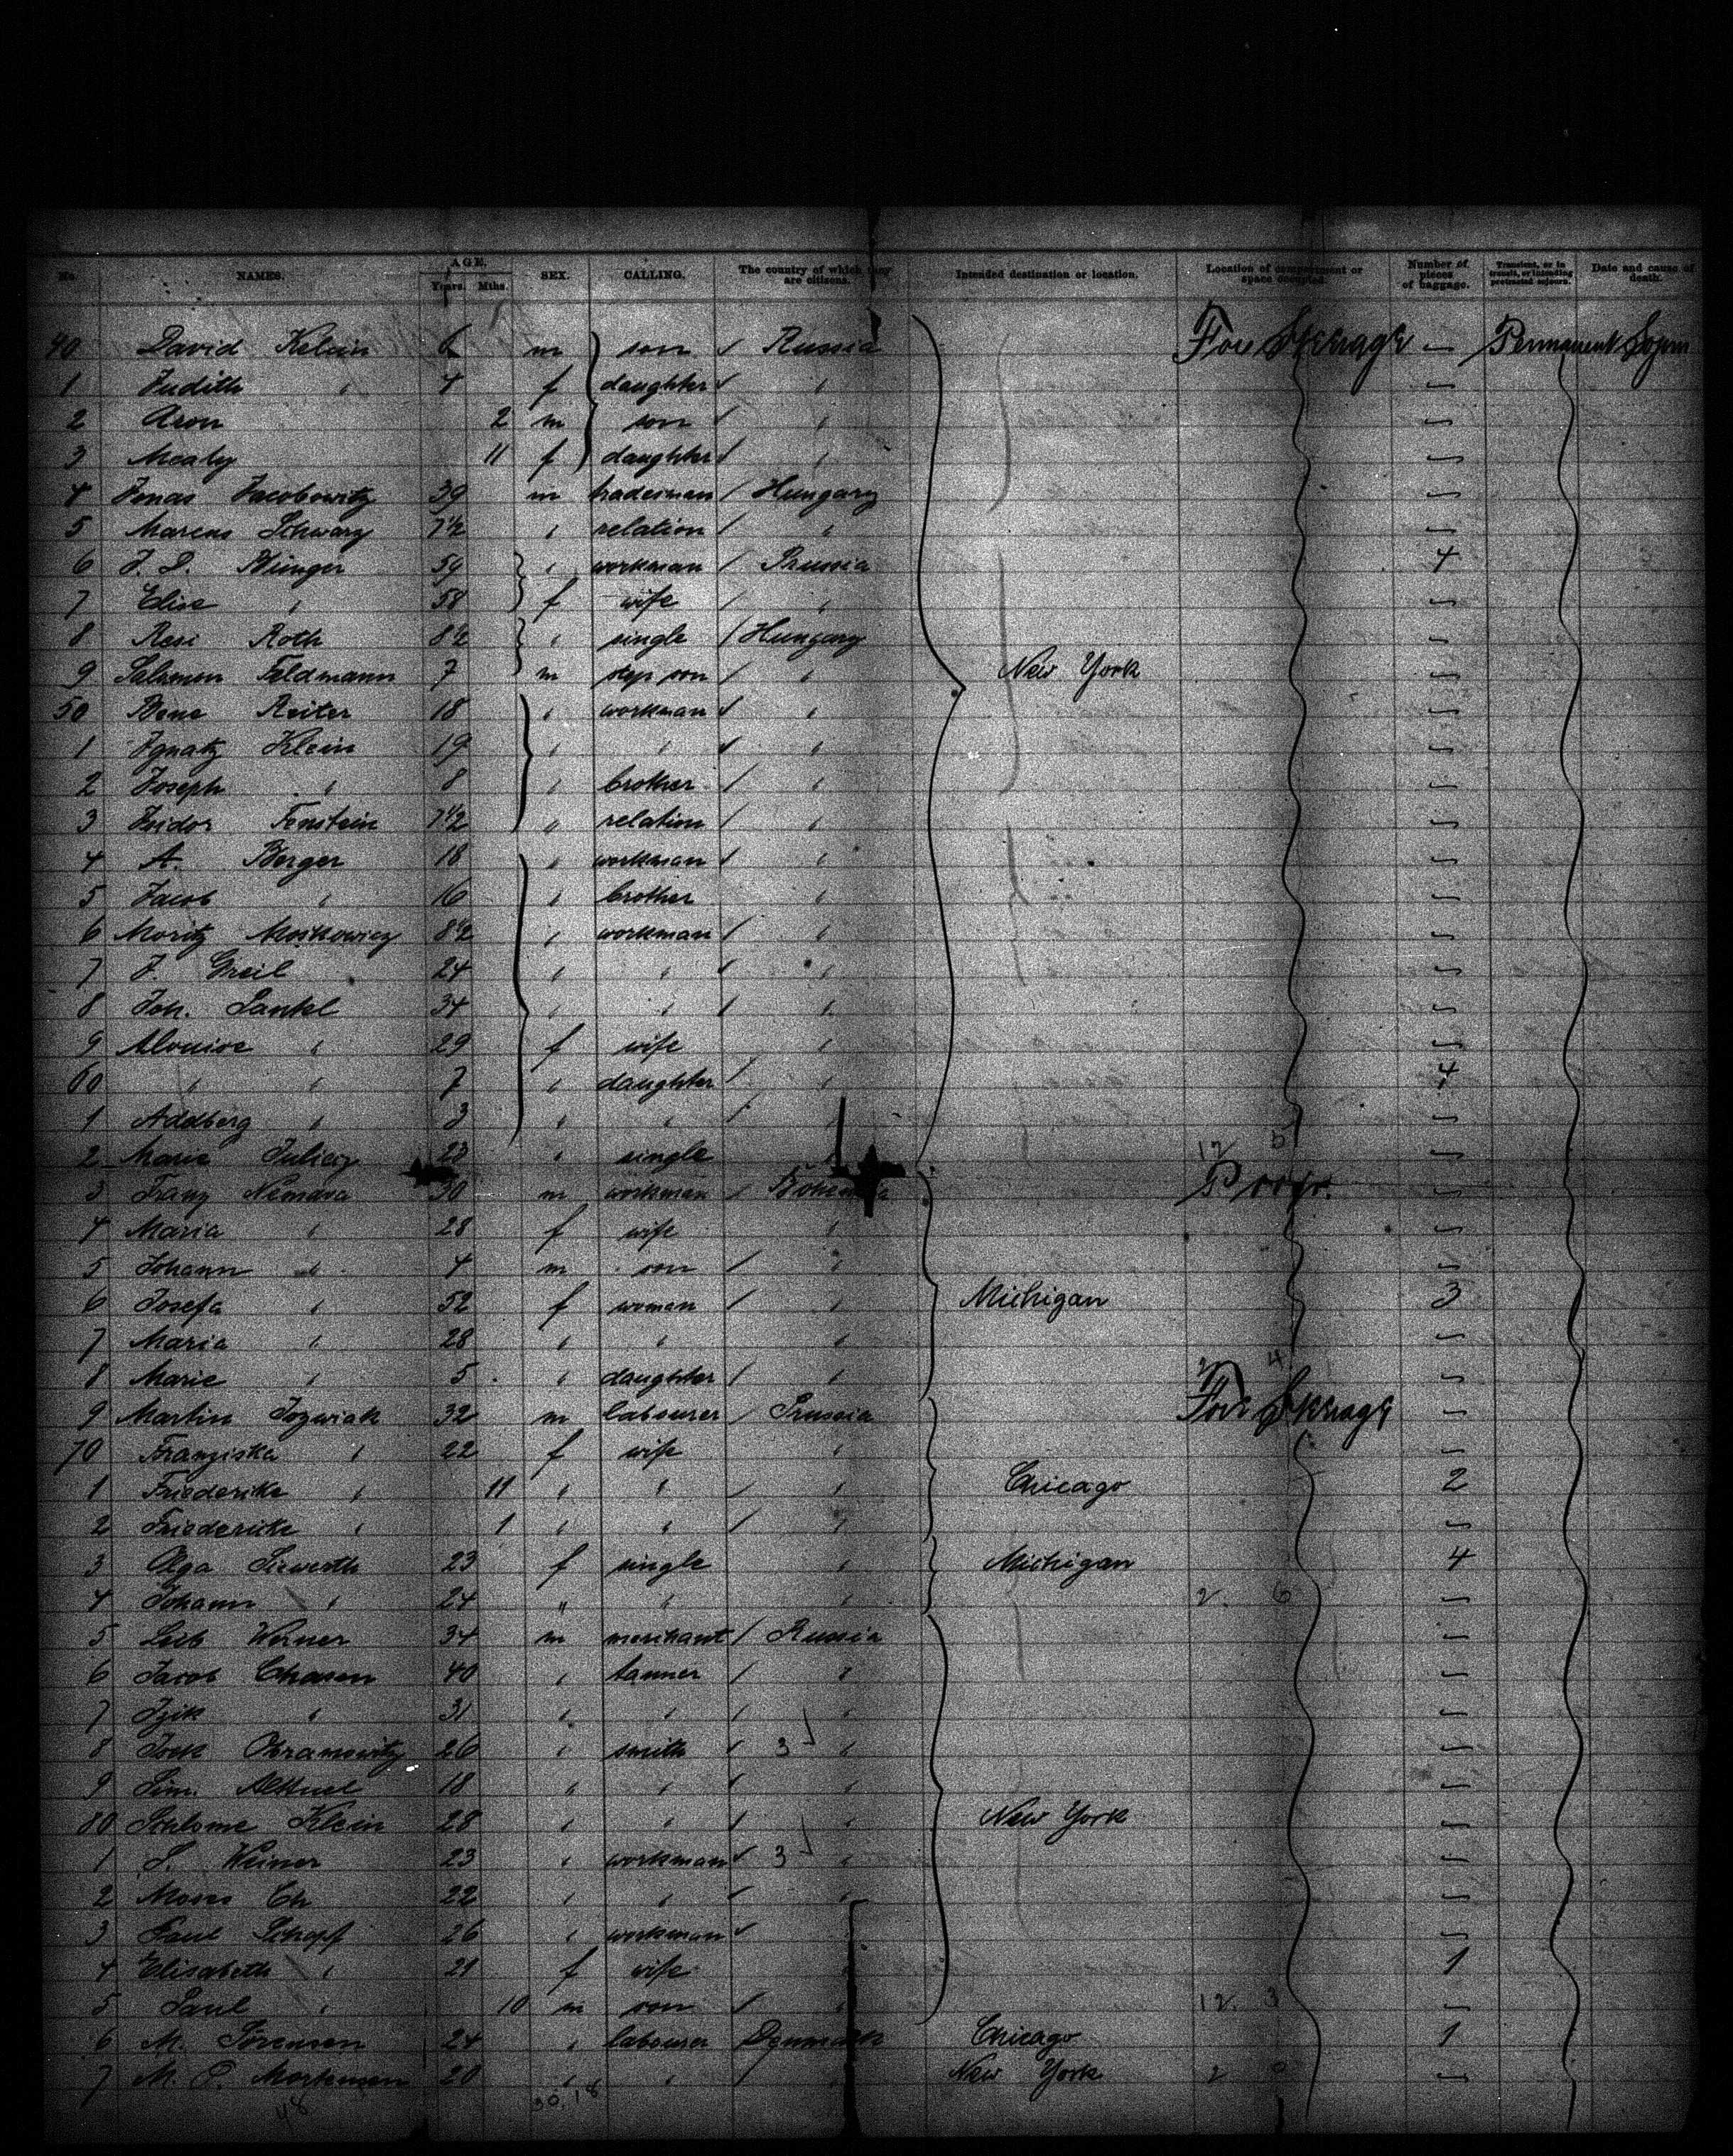 No. NAMES. AGE. Years. Mths. SEX. CALLING. The country of which they are citizens. Intended destination or location. Location of compartment or space occupied. Number of pieces of baggage. Transient, or in transit, or intending protracted sojourn. Date and cause of death.
40 David Kelein 6 m son Russia Fore Steerage — Permanent Sojourn
1 Judith " 4 f daughter "
2 Aron 2 m son "
3 11 f daughter "
4 Jonas Jacobowitz 39 m tradesman Hungary
5 Marcus Schwarz 7½ " relation "
6 59 " workman Prussia 4
7 Elise " 58 f wife "
8 Resi Roth 8½ " single Hungary
9 Salamon Feldmann 7 m step son " New York
50 Reiter 18 " workman "
1 Ignatz Klein 19 " " "
2 Joseph " 8 " brother "
3 Isidor 7½ " relation "
4 A. Berger 18 " workman "
5 Jacob " 16 " brother "
6 Moritz Moskowicz 8½ " workman "
7 J. Greil 24 " " "
8 Joh. 34 " " "
9 " 29 f wife "
60 " " 7 " daughter " 4
1 Addberg " 3 " "
2 Marie 23 " single 12 5
3 Franz 30 m workman Bohemia
4 Maria " 28 f wife "
5 Johann " 4 m son "
6 Josefa " 52 f woman " Michigan 3
7 Maria " 28 " " "
8 Marie " 5 " daughter " 4
9 Martin Jozwiak 32 m labourer Prussia Fore Steerage
70 Franziska " 22 f wife "
1 Friederike " 11 " " " Chicago 2
2 Friedericke " 1 " " "
3 Olga Siewerth 23 f single " Michigan 4
4 Johann " 24 " " " 2. 6
5 Leib Werner 34 m merchant Russia
6 Jacob Chasen 40 " tanner "
7 Izik " 31 " " "
8 26 " smith 3 "
9 Sim. 18 " " "
80 Schlome Klein 28 " " " New York
1 S. Weiner 23 " workman 3 "
2 Moses Ch 22 " " "
3 Paul Schopf 26 " workman
4 Elisabeth " 21 f wife 1
5 Paul " 10 m son 12. 3
6 M. Sorensen 24 " labourer Denmark Chicago 1
7 M. P. Mortensen 20 " " " New York 2
48 30. 18